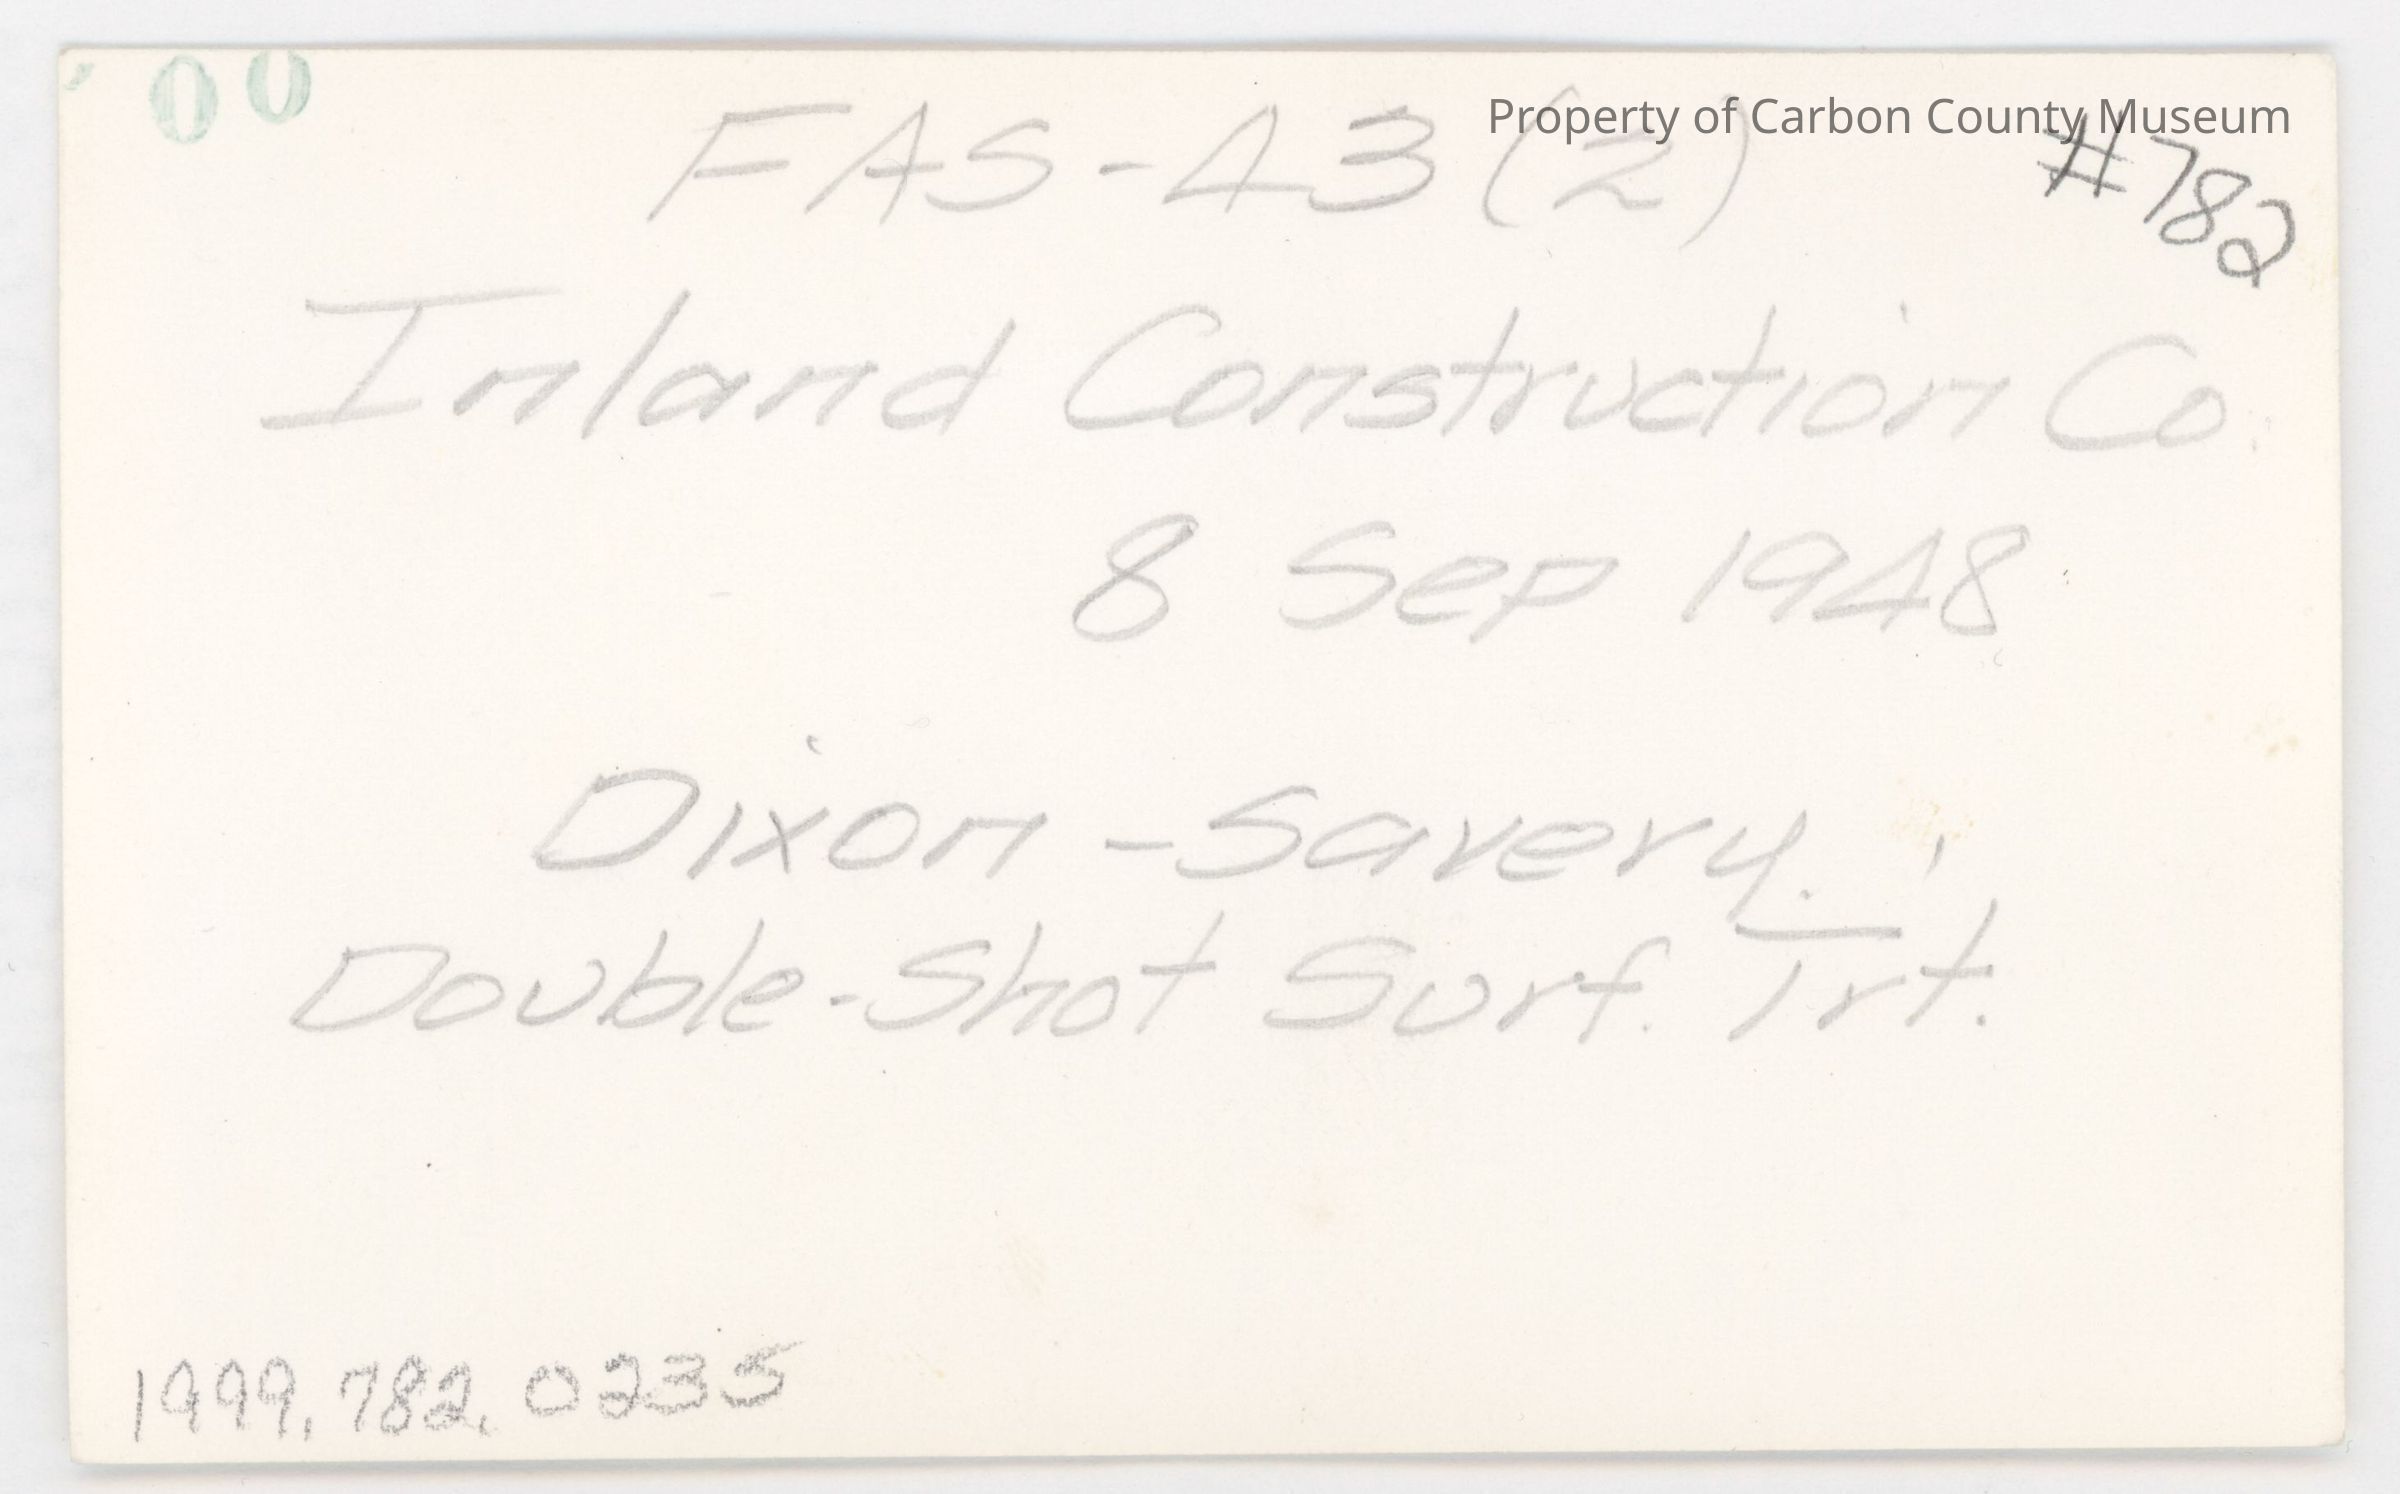 00
Property of Carbon County Museum
FAS-43(2)
#782
Inland Construction Co.
8 Sep 1948
Dixon-Savery.
Double-Shot Surf. Trt.
1999.782.0235